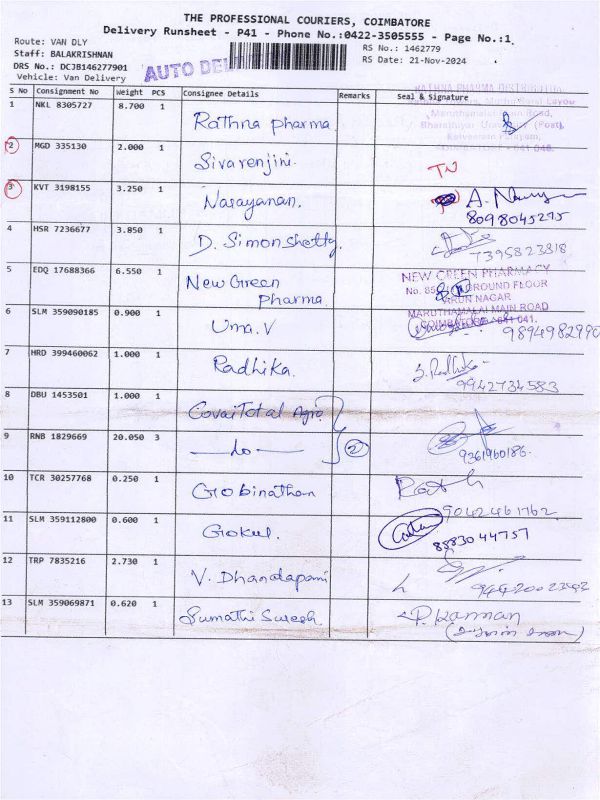 THE PROFESSIONAL COURIERS, COIMBATORE
Delivery Runsheet - P41 - Phone No.:0422-3505555 - Page No.:1
Route: VAN DLY
RS No.: 1462779
Staff: BALAKRISHNAN
RS Date: 21-Nov-2024
DRS No.: DCJB146277901
Vehicle: Van Delivery
AUTO DEL
S No Consignment No Weight PCS Consignee Details Remarks Seal & Signature
1 NKL 8305727 8.700 1 Rathna pharma
RATHNA PHARMA
Road,
(Post),
2 MGD 335130 2.000 1 Sivarenjini. TN
3 KVT 3198155 3.250 1 Narayanan. A.
8098045275
4 HSR 7236677 3.850 1 D. Simonshetty. 7395823818
5 EDQ 17688366 6.550 1 New Green Pharma
NEW GREEN PHARMACY
GROUND FLOOR
NAGAR
MARUTHAMALAI MAIN ROAD
COIMBATORE - 641 041.
6 SLM 359090185 0.900 1 Uma.V 9894982990
7 HRD 399460062 1.000 1 Radhika. S. Radhika
9942734583
8 DBU 1453501 1.000 1 CovaiTotal Agro.
9 RNB 1829669 20.050 3 — do — 2
9361960186.
10 TCR 30257768 0.250 1 Gobinathan
9042461762
11 SLM 359112800 0.600 1 Gokul.
8883044757
12 TRP 7835216 2.730 1 V. Dhandapani
13 SLM 359069871 0.620 1 Sumathi Suresh. P. Kannan